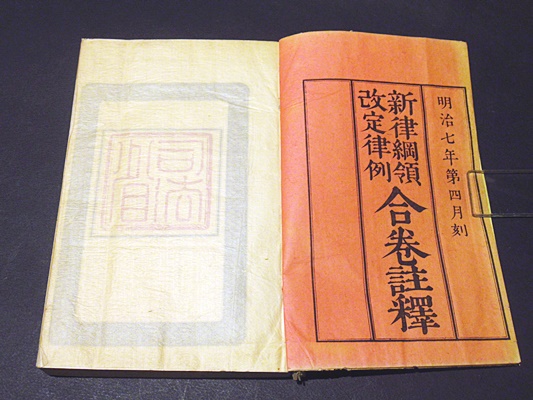 明治七年第四月刻
新律綱領
改定律例
合卷註釋